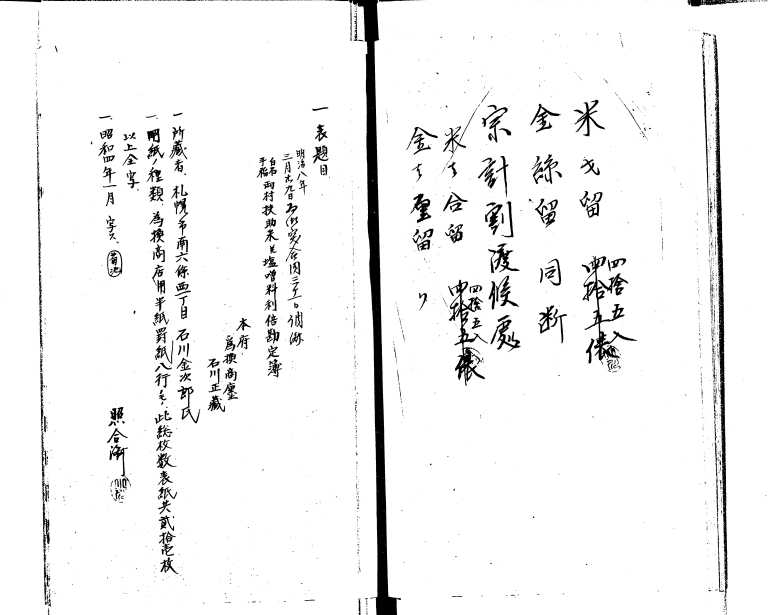 米戈留 四捨五入 四拾五俵
金絲留 同断
宗計割渡候處
米々合留 四捨五入 四拾五俵
金々釐留 〃
一 表題目
明治八年
三月
白石
手稲
両村扶助米并塩噌料利倍勘定簿
本府
為換商廛
石川正藏
一 所藏者、札幌市南六條西一丁目 石川金次郎氏
一、用紙ノ種類、為換商店用半紙罫紙八行モノ、此総枚数表紙共貳拾壱枚
以上全写、
一、昭和四年一月 写ス、
照合済